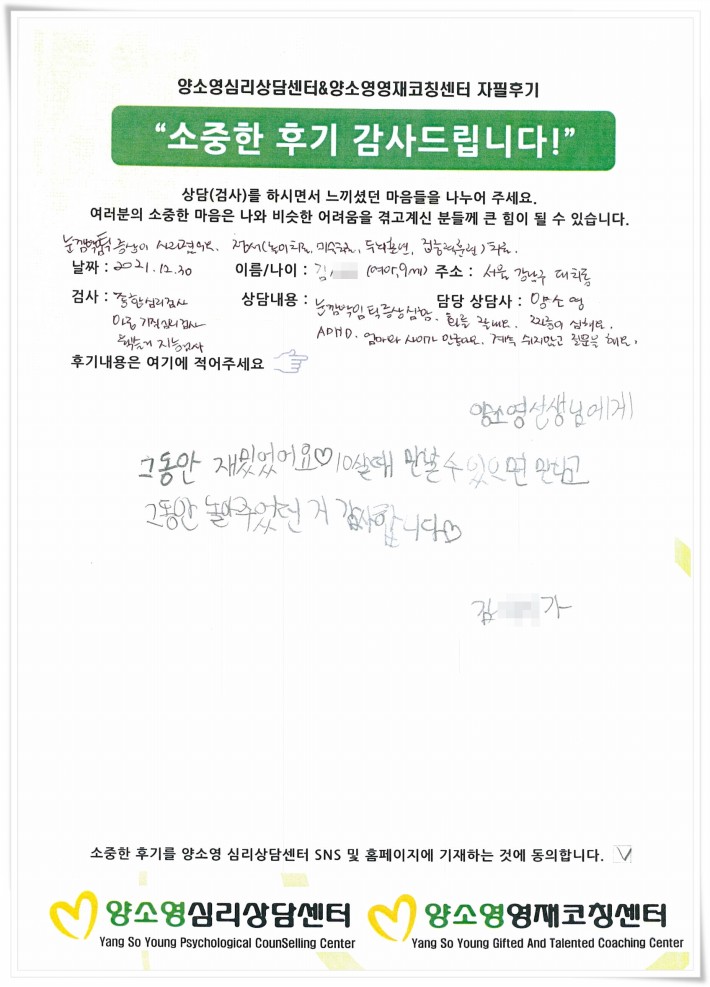 양소영심리상담센터&양소영영재코칭센터 자필후기
“소중한 후기 감사드립니다!”
상담(검사)를 하시면서 느끼셨던 마음들을 나누어 주세요.
여러분의 소중한 마음은 나와 비슷한 어려움을 겪고계신 분들께 큰 힘이 될 수 있습니다.
눈깜빡 증상이 사라졌어요. 정서(놀이치료, 미술치료, 두뇌훈련, 집중력훈련)치료
날짜 : 2021.12.30 이름/나이 : 김 (여아,9세) 주소 : 서울 강남구 대치동
검사 : 종합심리검사 상담내용 : 눈깜박임 틱증상심함. 화를 잘내요. 짜증이 심해요. 담당 상담사 : 양소영
아동 기질심리검사 ADHD. 엄마와 사이가 안좋아요. 계속 쉬지않고 질문을 해요.
지능검사
후기내용은 여기에 적어주세요
양소영선생님에게
그동안 재밌었어요♡10살때 만날 수 있으면 만나고
그동안 놀아주었던 거 감사합니다♡
김 가
소중한 후기를 양소영 심리상담센터 SNS 및 홈페이지에 기재하는 것에 동의합니다. ✓
양소영심리상담센터 양소영영재코칭센터
Yang So Young Psychological CounSelling Center Yang So Young Gifted And Talented Coaching Center